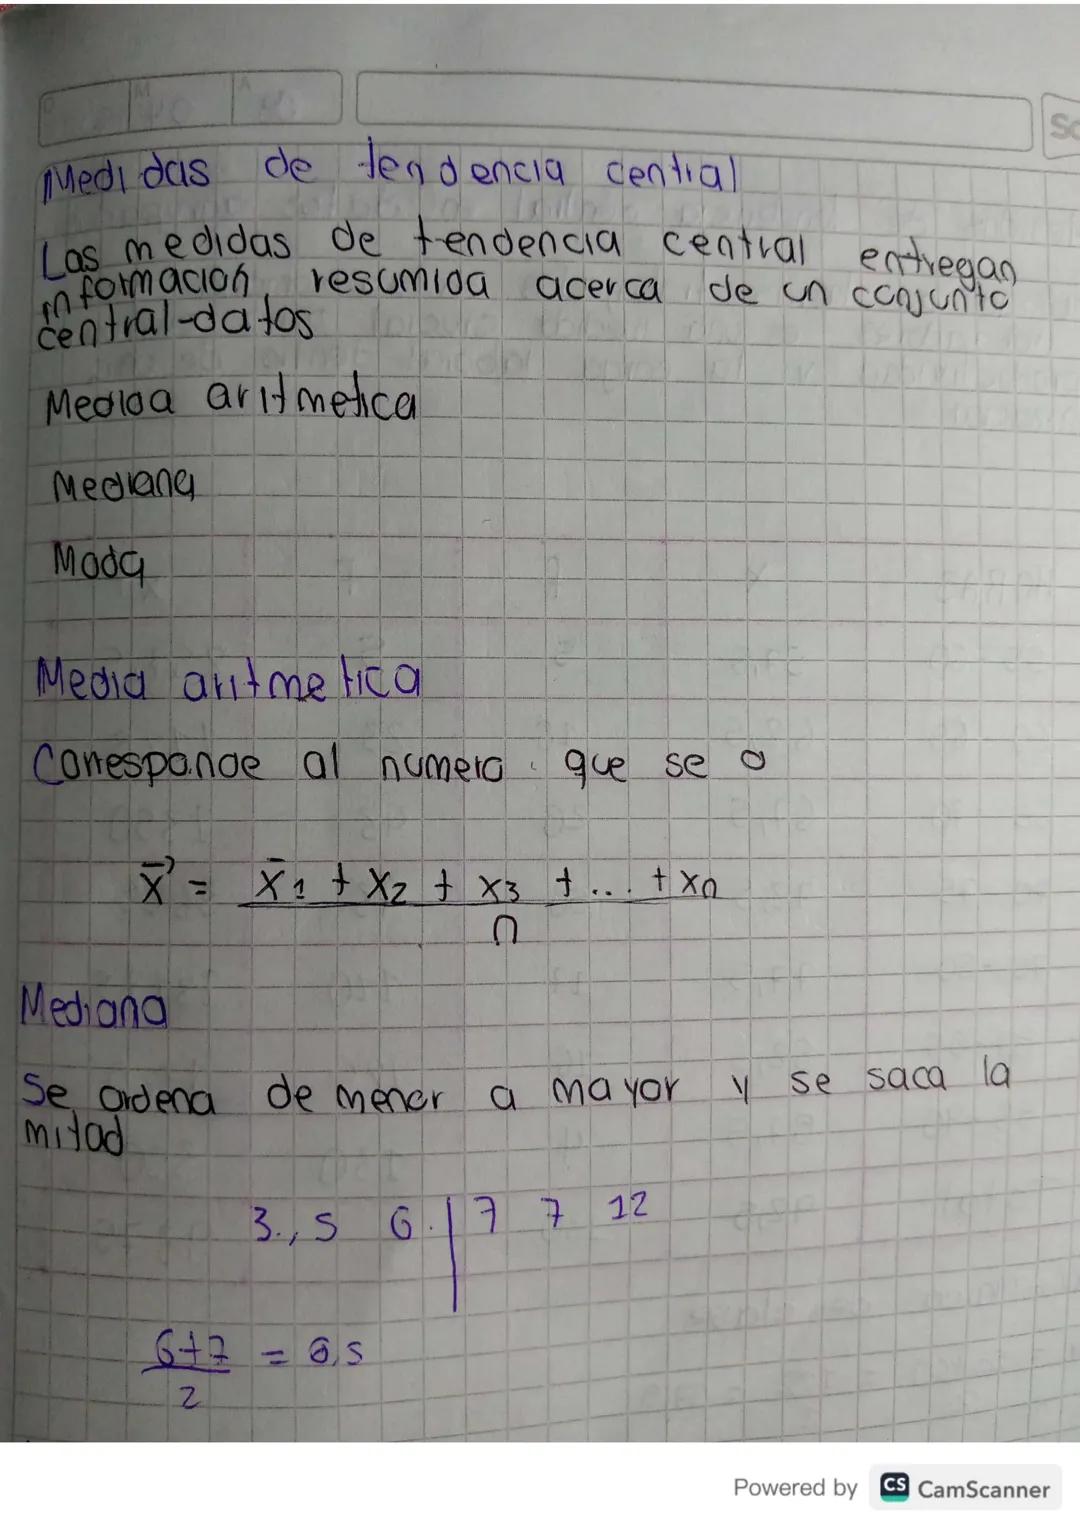 D M A
Sc
Medidas de tendencia central
Las medidas de tendencia central entregan
informacion resumida acerca de un conjunto
central-datos
Media aritmetica
Mediana
Moda
Media aritmetica
Corresponde al numero que se o
x̄ = x̄1 + x2 + x3 + ... + xn
n
Mediana
Se ordena de menor a mayor y se saca la
mitad
3., 5 6. | 7 7 12
6+7 = 6,5
2
Powered by CS CamScanner